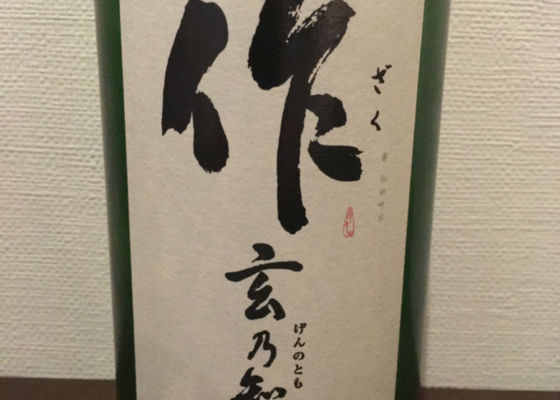 作
ざく
玄乃智
げんのとも